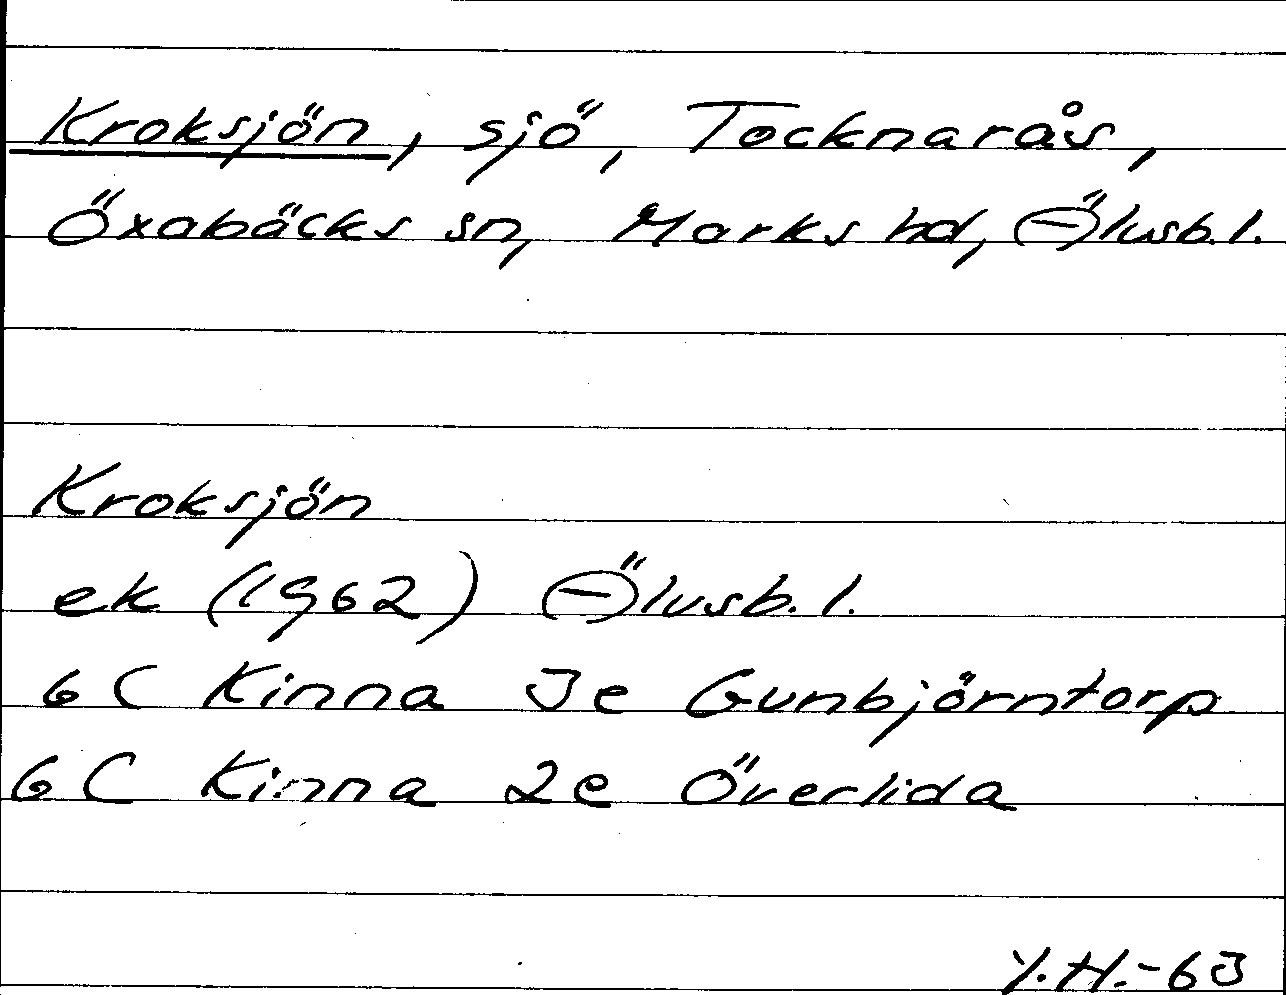 Kroksjön, sjö, Tocknarås,
Öxabäcks sn, Marks hd, Älvsb. l.
Kroksjön
ek (1962) Älvsb. l.
6 C Kinna 3e Gunbjörntorp
6 C Kinna 2e Överlida
Y.H.-63